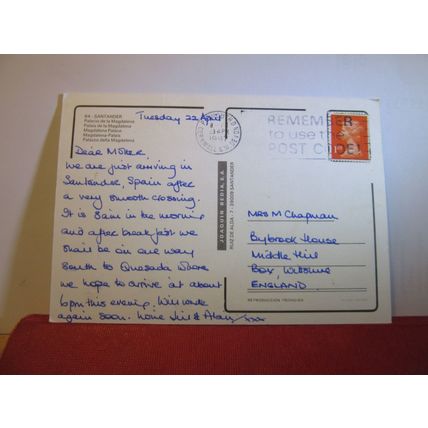 64 - SANTANDER
Palacio de la Magdalena
Palais de la Magdalena
Magdalena Palace
Magdalena-Palais
Palazzo della Magdalena
Tuesday 22 April
Dear Mother,
We are just arriving in
Santander, Spain after
a very smooth crossing.
It is 8am in the morning
and after breakfast we
shall be on our way
south to Quesada where
we hope to arrive at about
6pm this evening. Will write
again soon. Love Jill & Alan xxx
JOAQUIN BEDIA, S.A.
RUIZ DE ALDA, 7 - 39009 SANTANDER
REMEMBER
to use the
POST CODE
Mrs M Chapman
Bybrook House
Middle Hill
Box, Wiltshire
ENGLAND
REPRODUCCION PROHIBIDA